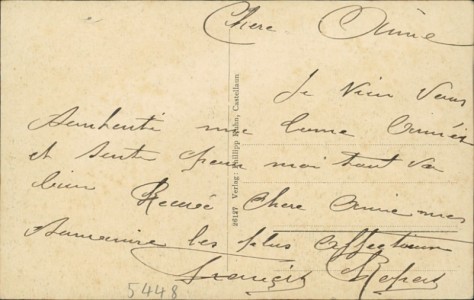 Chere Amie
Je Vien Vous
Souhaité une bonne Année
et Santé pour moi tout va
bien Recevé Chere Amie mes
les plus affectueux
François
26127 Verlag: Phillipp Kuhn, Castellaun
5448